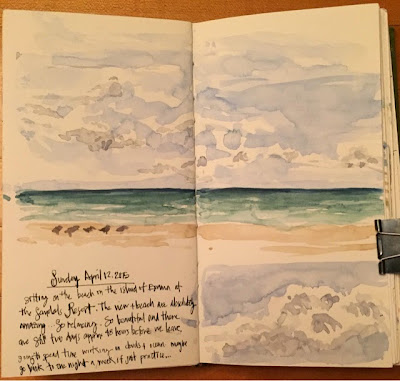 Sunday April 12. 2015
Sitting on the beach on the island of Exuma at
the Sandals Resort. The view & beach are absolutely
amazing. So relaxing. So beautiful and there
are still two days before we leave,
going to spend time working on clouds & ocean maybe
go back to one night a week if get practice...